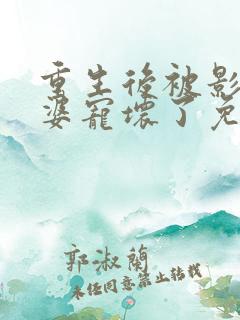 重生後被影
婆寵壞了免
郭淑蘭
未经同意禁止转载